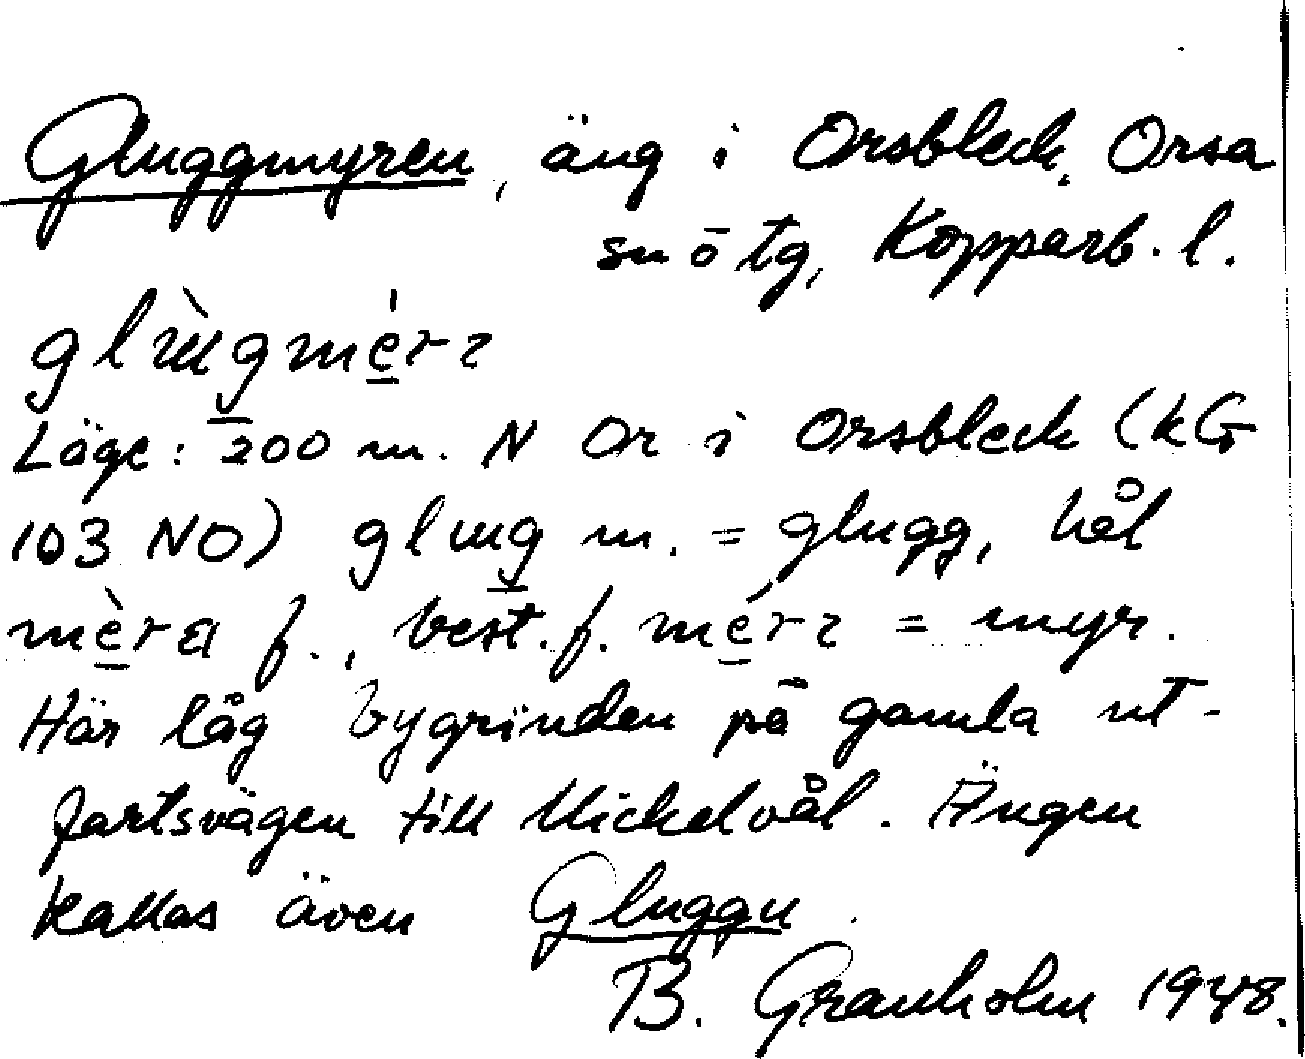 Gluggmyren, äng i Orsbleck, Orsa
sn ö tg, Kopparb. l.
Läge: 200 m. N Or i Orsbleck (kG
103 NO) glug m. = glugg, hål
mèra f., best. f. = myr.
Här låg bygrinden på gamla ut-
fartsvägen till Mickelvål. Ängen
kallas även Gluggu.
B. Granholm 1948.